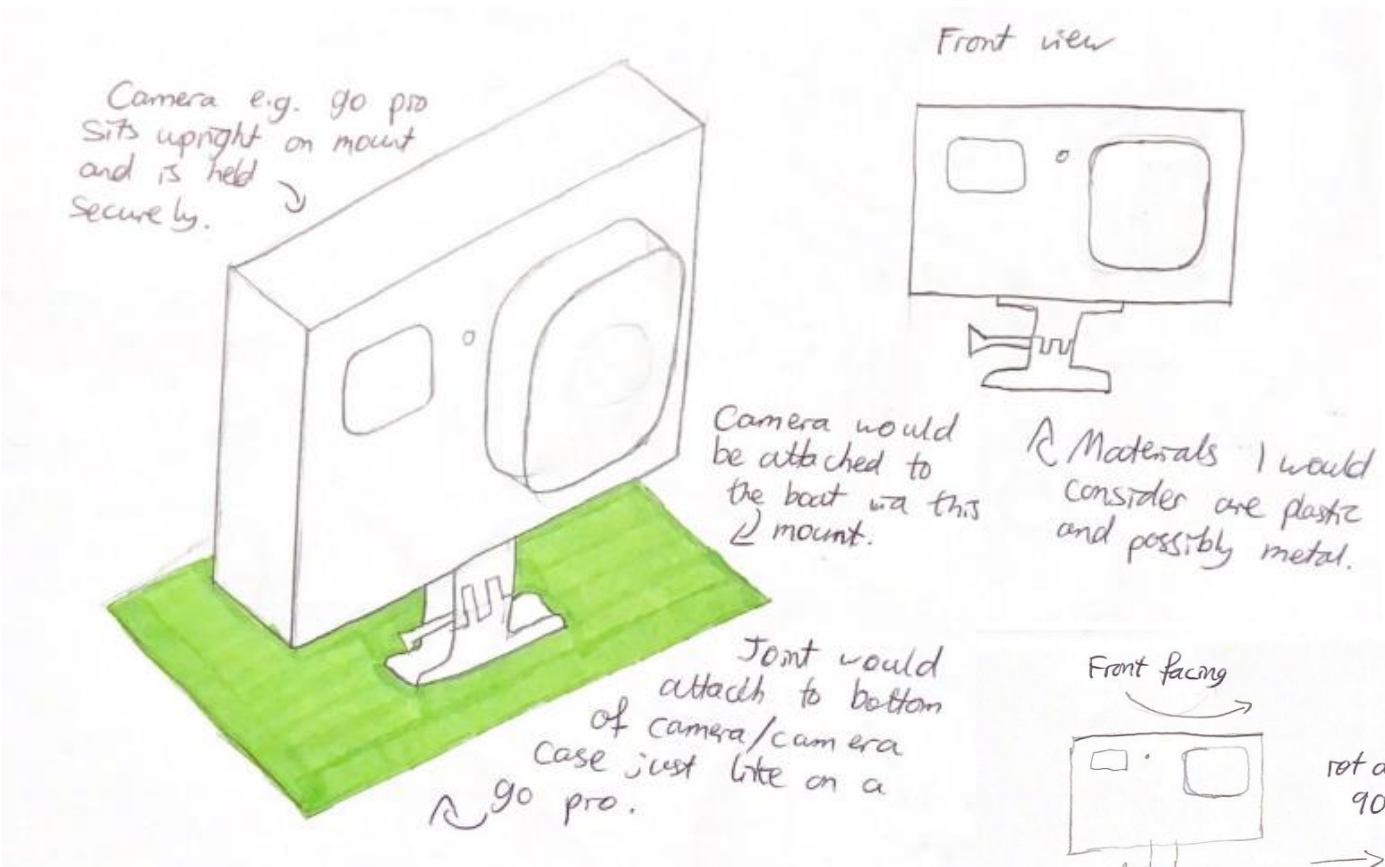 Camera e.g. go pro
sits upright on mount
and is held
securely.
Front view
Camera would
be attached to
the boat via this
mount.
Materials I would
consider are plastic
and possibly metal.
Joint would
attach to bottom
of camera/camera
case just like on a
go pro.
Front facing
rot
90